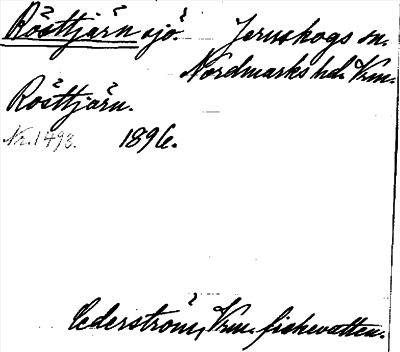 Rösttjärn sjö. Jernskogs sn.
Nordmarks hd. Vrm.
Rösttjärn.
Nr. 1493. 1896.
Cederström, Vrm. fiskevatten.